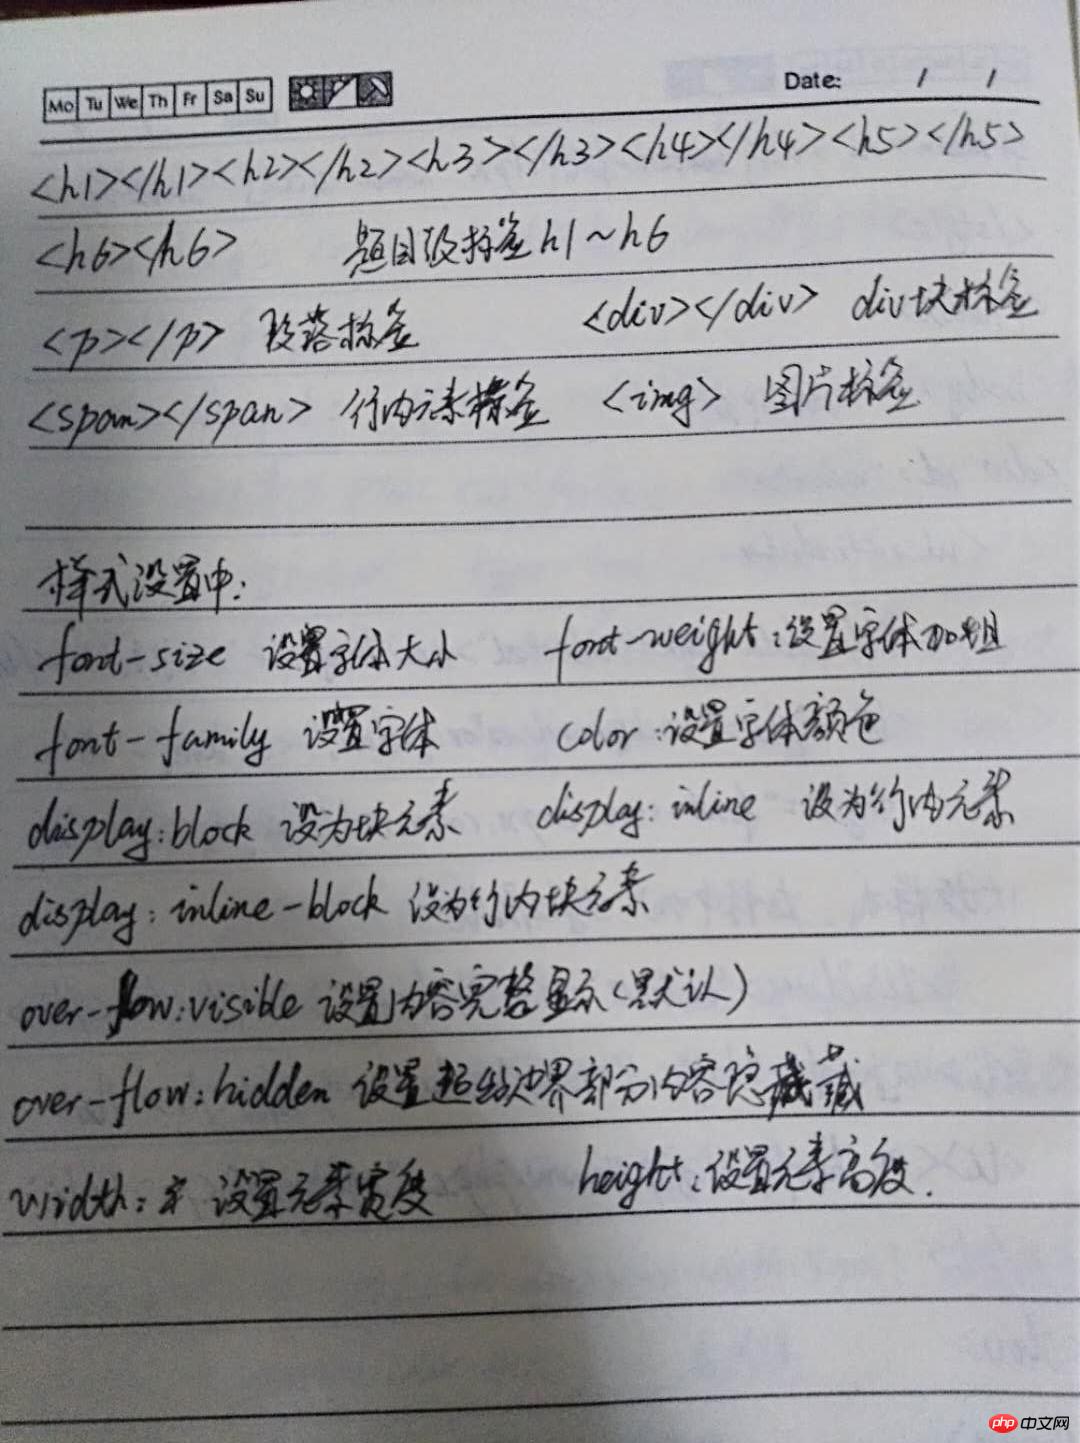 Mo Tu We Th Fr Sa Su Date: / /
<h1></h1><h2></h2><h3></h3><h4></h4><h5></h5>
<h6></h6> 题目级标签h1~h6
<p></p> 段落标签 <div></div> div块标签
<span></span> 行内元素标签 <img> 图片标签
样式设置中:
font-size 设置字体大小 font-weight:设置字体加粗
font-family 设置字体 color:设置字体颜色
display:block 设为块元素 display:inline 设为行内元素
display:inline-block 设为行内块元素
over-flow:visible 设置内容完整显示(默认)
over-flow:hidden 设置超出边界部分内容隐藏
width: 设置元素宽度 height:设置元素高度.
php 中文网